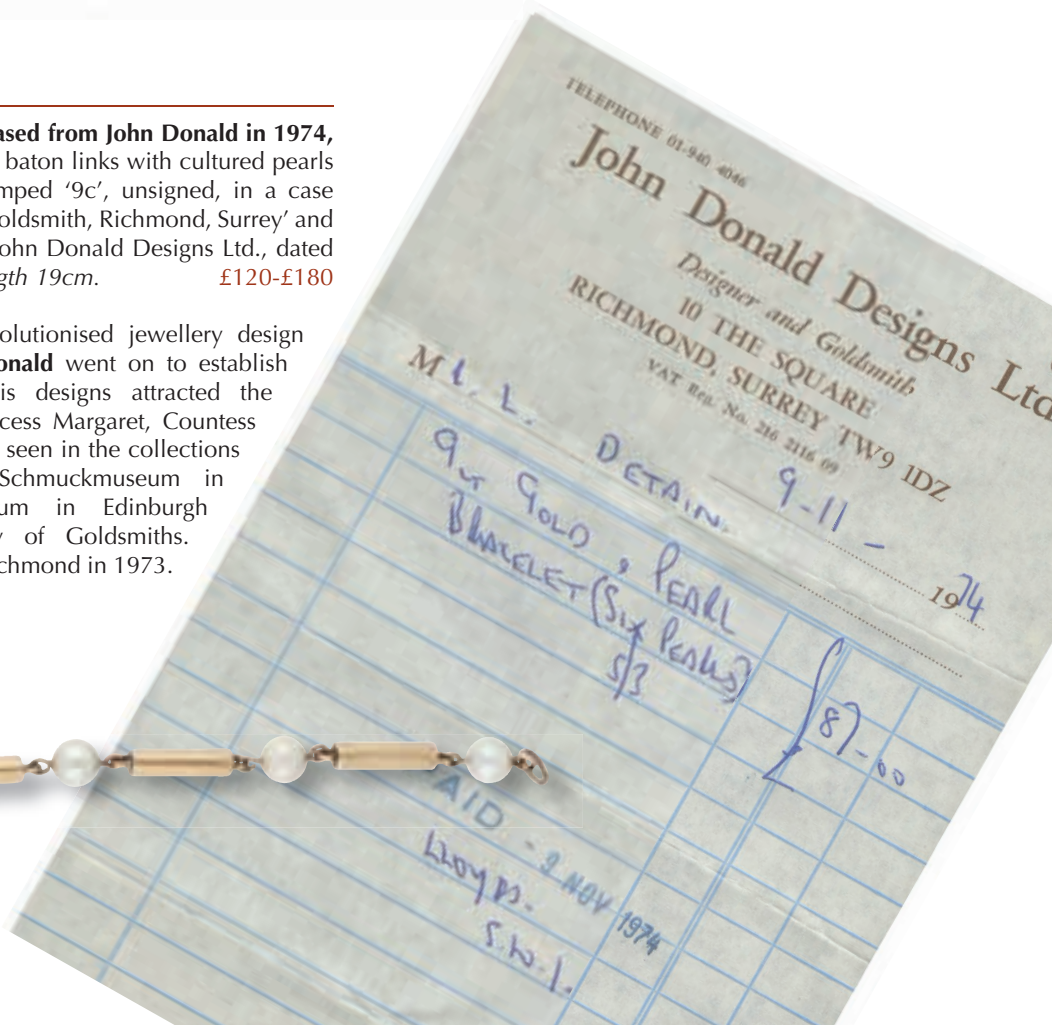 ased from John Donald in 1974,
baton links with cultured pearls
mped ‘9c’, unsigned, in a case
oldsmith, Richmond, Surrey’ and
ohn Donald Designs Ltd., dated
gth 19cm. £120-£180
olutionised jewellery design
onald went on to establish
is designs attracted the
cess Margaret, Countess
seen in the collections
Schmuckmuseum in
um in Edinburgh
y of Goldsmiths.
chmond in 1973.
TELEPHONE 01-940 4046
John Donald Designs Ltd
Designer and Goldsmith
10 THE SQUARE
RICHMOND, SURREY TW9 1DZ
VAT Reg. No. 216 2116 09
9-11- 1974
M
9ct GOLD & PEARL
BRACELET (SIX PEARLS)
£87-00
AID - 9 NOV 1974
LLOYDS.
S.W.1.